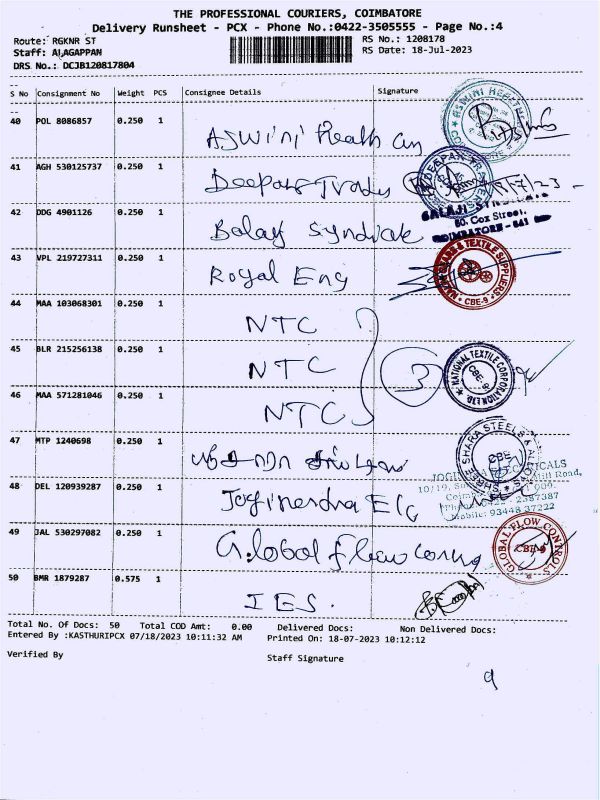 THE PROFESSIONAL COURIERS, COIMBATORE
Delivery Runsheet - PCX - Phone No.:0422-3505555 - Page No.:4
Route: RGKNR ST
RS No.: 1208178
Staff: AlAGAPPAN
RS Date: 18-Jul-2023
DRS No.: DCJB120817804
S No Consignment No Weight PCS Consignee Details Signature
40 POL 8086857 0.250 1 Aswini Health
41 AGH 530125737 0.250 1 Deepak 18/7/23
DEEPAK
42 DDG 4901126 0.250 1 Balaji Syndicate
60. Cox Street,
COIMBATORE - 641
43 VPL 219727311 0.250 1 Royal Eng
& TEXTILE SUPPLIERS
CBE-9
44 MAA 103068301 0.250 1 NTC
45 BLR 215256138 0.250 1 NTC 3
NATIONAL TEXTILE CORPORATION LTD
CBE-9
46 MAA 571281046 0.250 1 NTC
47 MTP 1240698 0.250 1
SHREE SHARA STEELS & ALLOYS
CBE
48 DEL 120939287 0.250 1 Joginendra
10/19,
Mobile: 93448 37222
49 JAL 530297082 0.250 1 Global flow
GLOBAL FLOW CONTROLS
CBE-9
50 BMR 1879287 0.575 1 IES.
Total No. Of Docs: 50 Total COD Amt: 0.00 Delivered Docs: Non Delivered Docs:
Entered By :KASTHURIPCX 07/18/2023 10:11:32 AM Printed On: 18-07-2023 10:12:12
Verified By Staff Signature
9